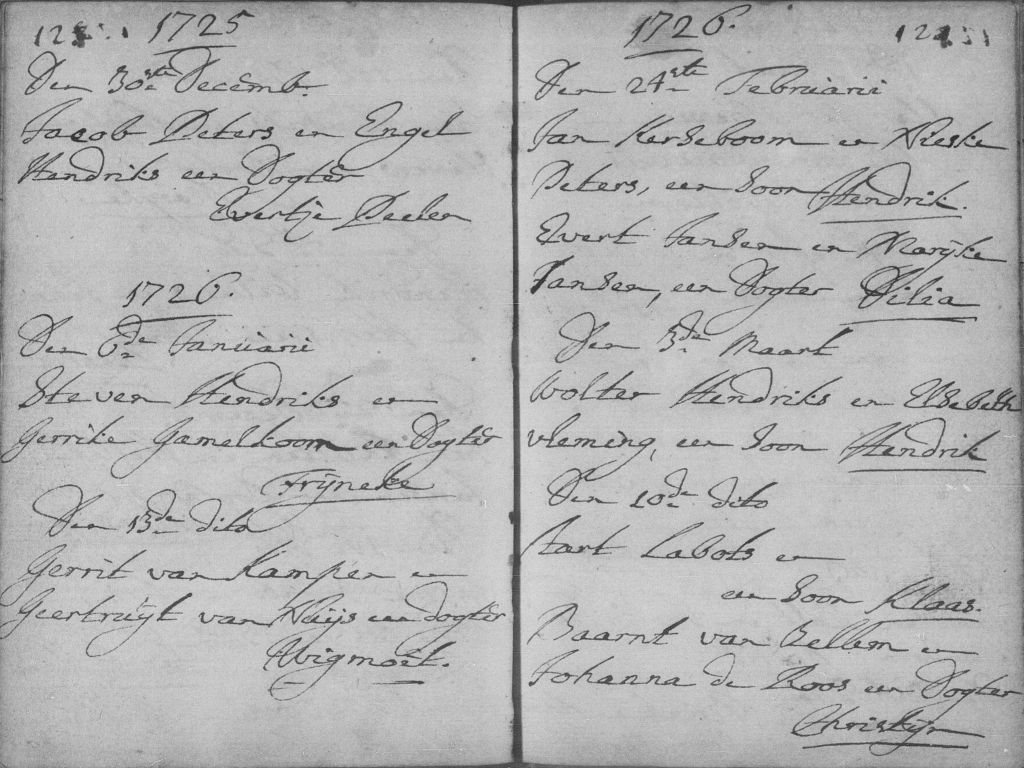 1725
Den 30ste Decemb.
Jacob Peters en Engel
Hendriks een Dogter
Evertje Peelen
1726.
Den 6de Januarii
Steven Hendriks en
Gerrike Gamelkoorn een Dogter
Trijneke
Den 13de dito
Gerrit van Kampen en
Geertruijt van Nuijs een dogter
1726.
Den 24ste Februarii
Jan Kerseboom en Nieske
Peters, een Soon Hendrik.
Evert Jansen en Marijke
Jansen, een Dogter Dilia
Den 3de Maart
Wolter Hendriks en Elsebeth
vleming, een Soon Hendrik
Den 10de dito
Aart Labots en
een Soon Klaas.
Baarnt van Bellem en
Johanna de Roos een Dogter
Christijn